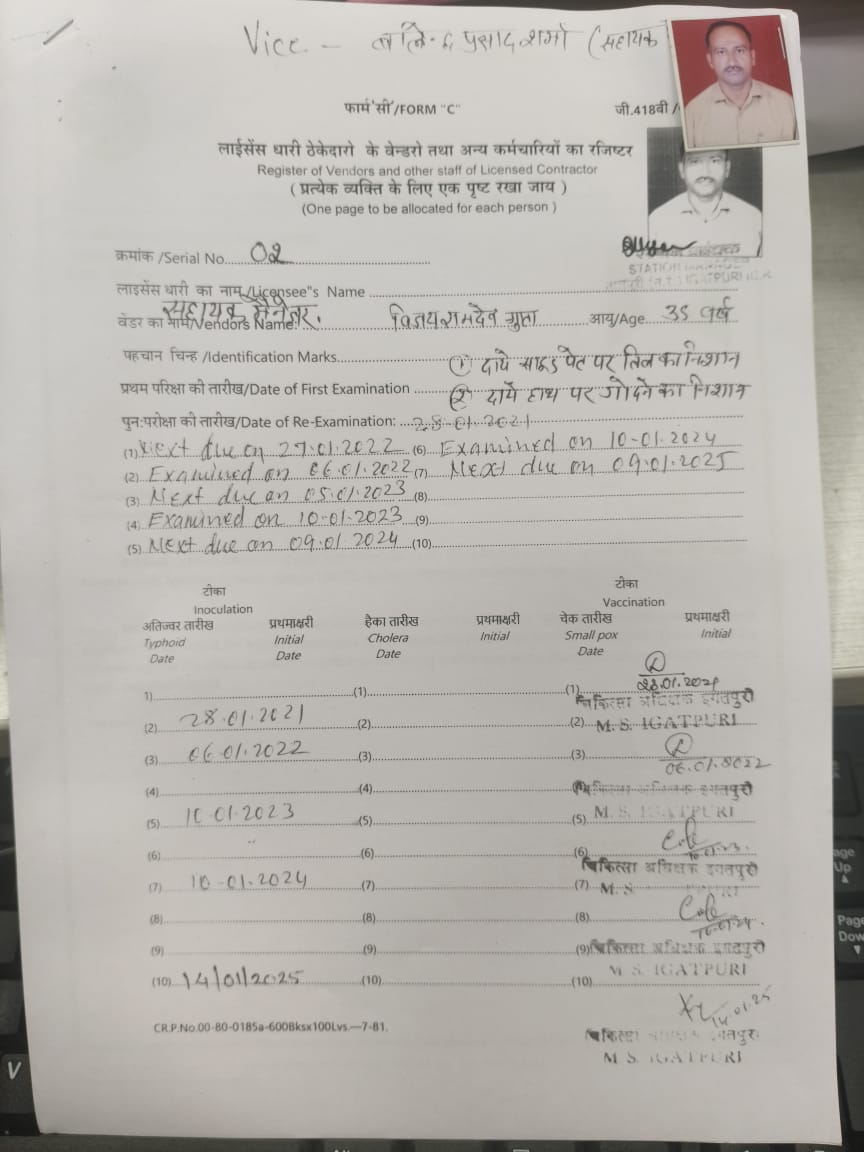 Vice - प्रसाद शर्मा (सहायक
फार्म 'सी'/FORM "C"
जी.418बी /
लाईसेंस धारी ठेकेदारो के वेन्डरो तथा अन्य कर्मचारियों का रजिष्टर
Register of Vendors and other staff of Licensed Contractor
( प्रत्येक व्यक्ति के लिए एक पृष्ट रखा जाय )
(One page to be allocated for each person )
क्रमांक /Serial No. 02
लाईसेंस धारी का नाम/Licensee"s Name
सहायक मैनेजर.
वेंडर का नाम/Vendors Name: विजय रामदेव गुप्ता आयु/Age 35 वर्ष
पहचान चिन्ह /Identification Marks (1) दाये साइड पेट पर तिल का निशान
प्रथम परिक्षा की तारीख/Date of First Examination (2) दाये हाथ पर गोदने का निशान
पुन:परीक्षा की तारीख/Date of Re-Examination: 28-01-2021
(1) Next due on 27.01.2022 (6) Examined on 10-01-2024
(2) Examined on 06.01.2022 (7) Next due on 09.01.2025
(3) Next due on 05.01.2023 (8)
(4) Examined on 10-01-2023 (9)
(5) Next due on 09.01.2024 (10)
टीका टीका
Inoculation Vaccination
अतिज्वर तारीख प्रथमाक्षरी हैका तारीख प्रथमाक्षरी चेक तारीख प्रथमाक्षरी
Typhoid Initial Cholera Initial Small pox Initial
Date Date Date Date
1) (1) (1) 28.01.2021
चिकित्सा अधिक्षक इगतपुरी
(2) 28.01.2021 (2) (2) M. S. IGATPURI
(3) 06.01.2022 (3) (3) 06.01.2022
(4) (4) चिकित्सा अधिक्षक इगतपुरी
(5) 10.01.2023 (5) (5) M. S. IGATPURI
(6) (6) (6) 10.01.23
चिकित्सा अधिक्षक इगतपुरी
(7) 10-01-2024 (7) (7) M. S
(8) (8) (8) 10.01.24
(9) (9) (9) चिकित्सा अधिक्षक इगतपुरी
(10) 14/01/2025 (10) (10) M S IGATPURI
14.01.25
CR.P.No.00-80-0185a-600Bksx100Lvs.—7-81.
चिकित्सा अधिक्षक इगतपुरी
M S IGATPURI